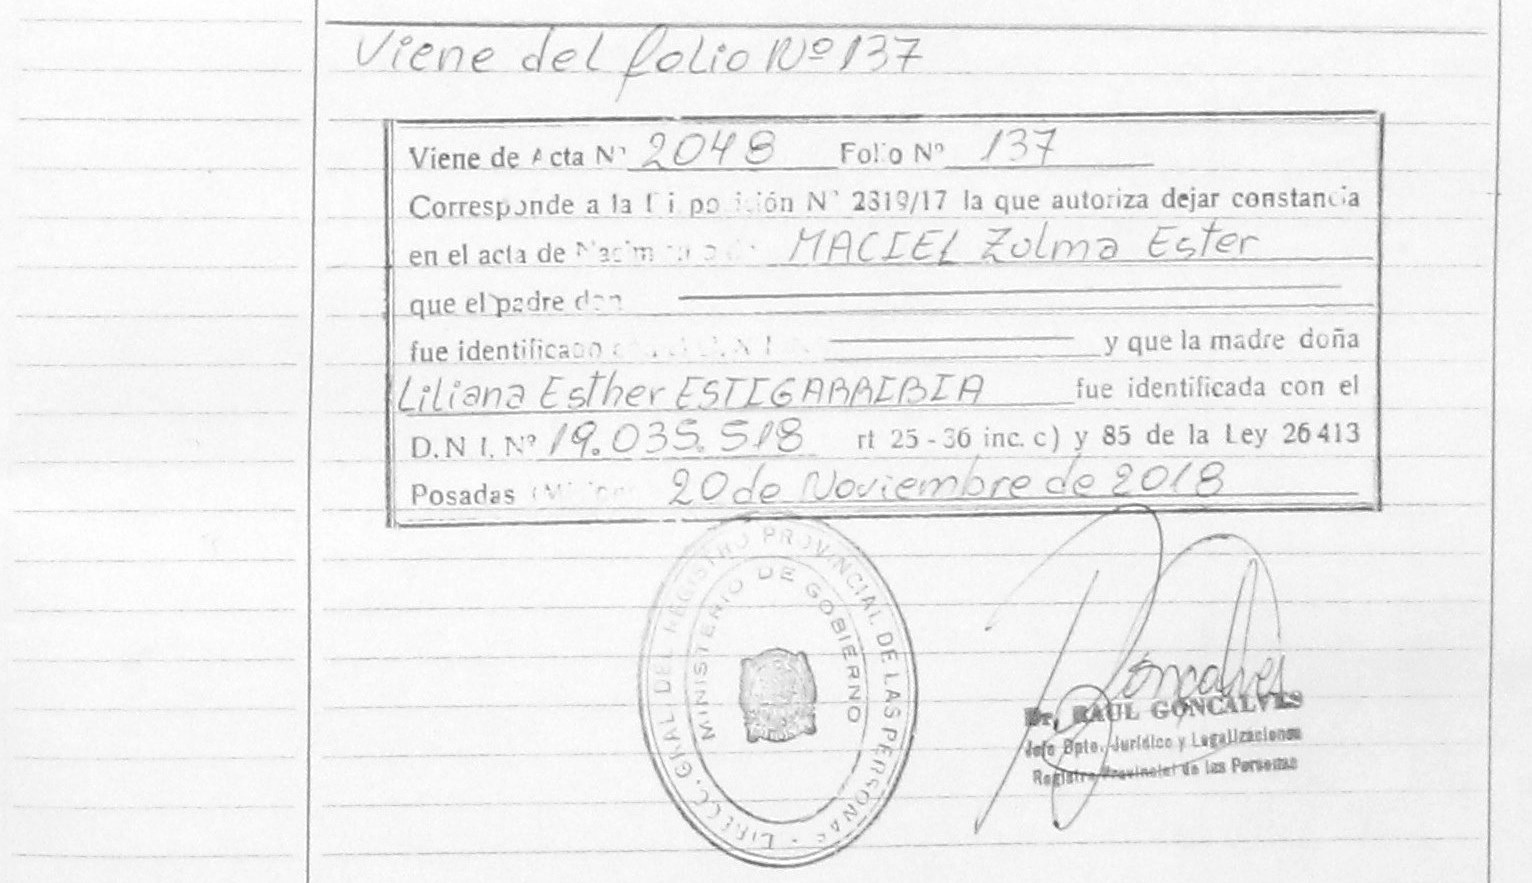 Viene del folio Nº 137
Viene de Acta Nº 2048 Folio Nº 137
Corresponde a la Disposición Nº 2819/17 la que autoriza dejar constancia
en el acta de MACIEL Zulma Ester
que el padre don
fue identificado y que la madre doña
Liliana Esther ESTIGARRIBIA fue identificada con el
D.N.I. Nº 19.035.518 rt 25-36 inc. c) y 85 de la Ley 26413
Posadas 20 de Noviembre de 2018
DIRECC. GRAL. DEL REGISTRO PROVINCIAL DE LAS PERSONAS
MINISTERIO DE GOBIERNO
Goncalves
Dr. RAUL GONCALVES
Jefe Dpto. Jurídico y Legalizaciones
Registro Provincial de las Personas